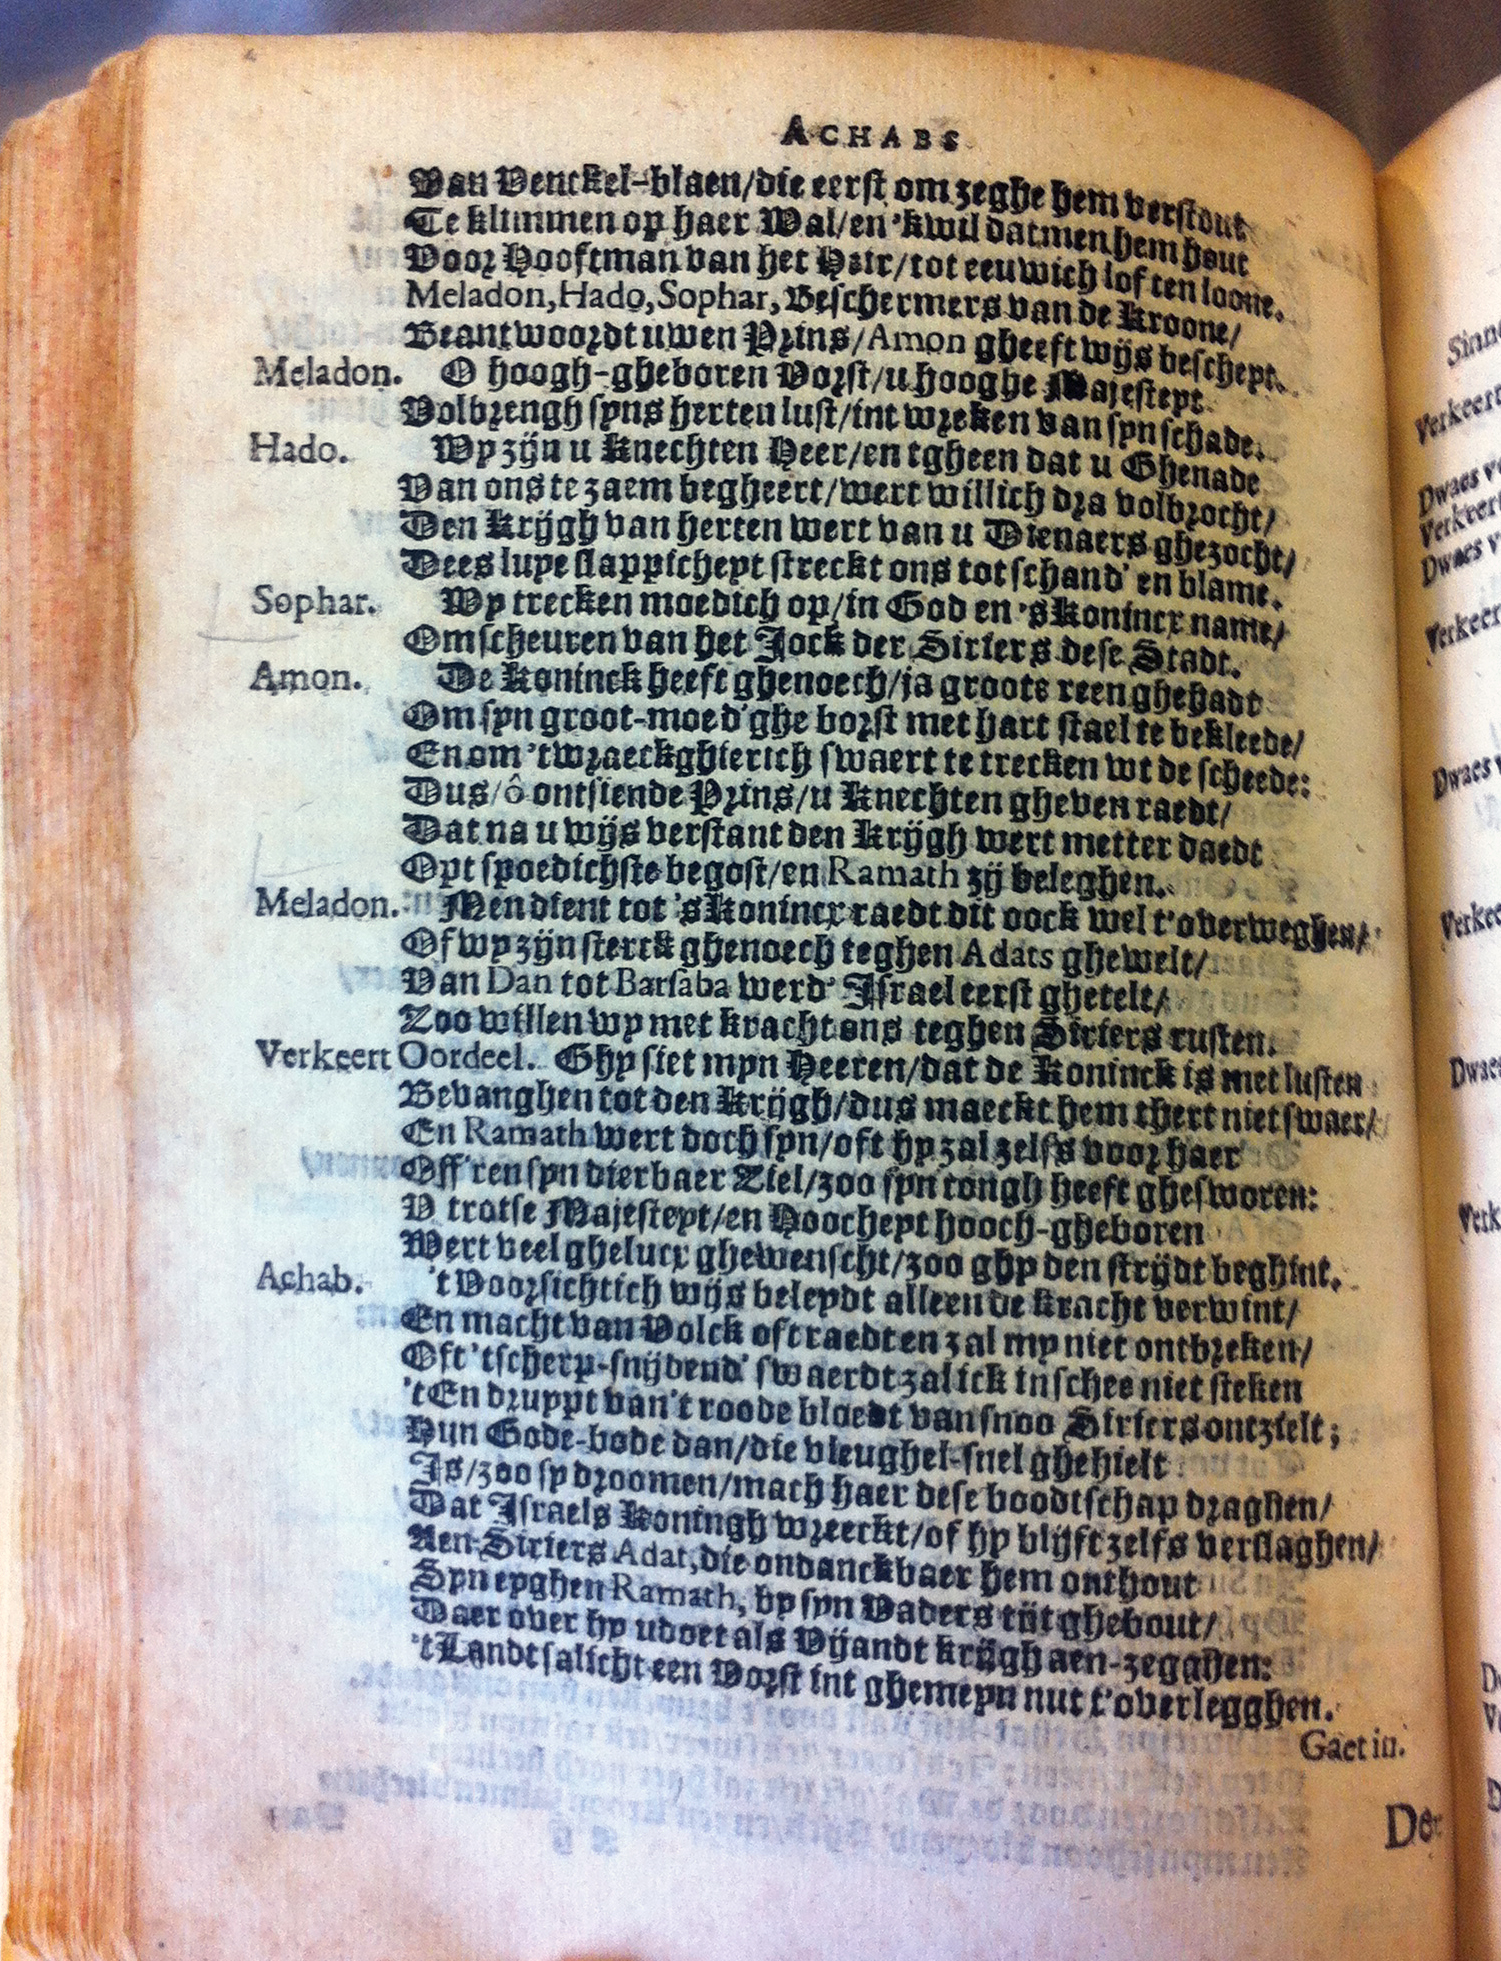 ACHABS
Van Venckel-blaen/die eerst om zeghe hem verstout
Te klimmen op haer Wal/en 'kwil datmen hem hout
Voor Hooftman van het Heir/tot eeuwich lof ten loone.
Meladon, Hado, Sophar, Beschermers van de Kroone/
Beantwoordt uwen Prins/Amon gheeft wijs bescheyt.
Meladon. O hoogh-gheboren Vorst/u hooghe Majesteyt
Volbrengh syns herten lust/int wreken van syn schade.
Hado. Wy zijn u Knechten Heer/en tgheen dat u Ghenade
Van ons te zaem begheert/wert willich dra volbrocht/
Den Krijgh van herten wert van u Dienaers ghezocht/
Dees luye slappicheyt streckt ons tot schand' en blame.
Sophar. Wy trecken moedich op/in God en 's Konincx name/
Om scheuren van het Jock der Siriers dese Stadt.
Amon. De Koninck heeft ghenoech/ja groote reen ghehadt
Om syn groot-moed'ghe borst met hart stael te bekleede/
En om 't wraeckghierich swaert te trecken wt de scheede:
Dus/ô ontsiende Prins/u Knechten gheven raedt/
Dat na u wijs verstant den Krijgh wert metter daedt
Opt spoedichste begost/en Ramath zij beleghen.
Meladon. Men dient tot 's Konincx raedt dit oock wel t'overweghen/
Of wy zijn sterck ghenoech teghen Adats ghewelt/
Van Dan tot Barsaba werd' Israel eerst ghetelt/
Zoo willen wy met kracht ons teghen Siriers rusten.
Verkeert Oordeel. Ghy siet myn Heeren/dat de Koninck is met lusten
Bevanghen tot den Krijgh/dus maeckt hem thert niet swaer/
En Ramath wert doch syn/oft hy zal zelfs voor haer
Off'ren syn dierbaer Ziel/zoo syn tongh heeft ghesworen:
V trotse Majesteyt/en Hoocheyt hooch-gheboren
Wert veel ghelucx ghewenscht/zoo ghy den strijdt beghint.
Achab. 't Voorsichtich wijs beleydt alleen de kracht verwint/
En macht van Volck oft raedt en zal my niet ontbreken/
Oft 'tscherp-snijdend' swaerdt zal ick in schee niet steken
't En druppt van't roode bloedt van snoo Siriers ontzielt;
Hun Gode-bode dan/die vleughel-snel ghehielt
Is/zoo sy droomen/mach haer dese boodtschap draghen/
Dat Israels Koningh wreeckt/of hy blijft zelfs verslaghen/
Aen Siriers Adat, die ondanckbaer hem onthout
Syn eyghen Ramath, by syn Vaders tijt ghebout/
Daer over hy u doet als Vijandt krijgh aen-zegghen:
't Landt salicht een Vorst int ghemeyn nut t'overlegghen.
Gaet in.
Der
Verkeert
Dwaes
Verkeert
Dwaes
Verkeer
Dwaes
Verkee
Dwaes
Verk